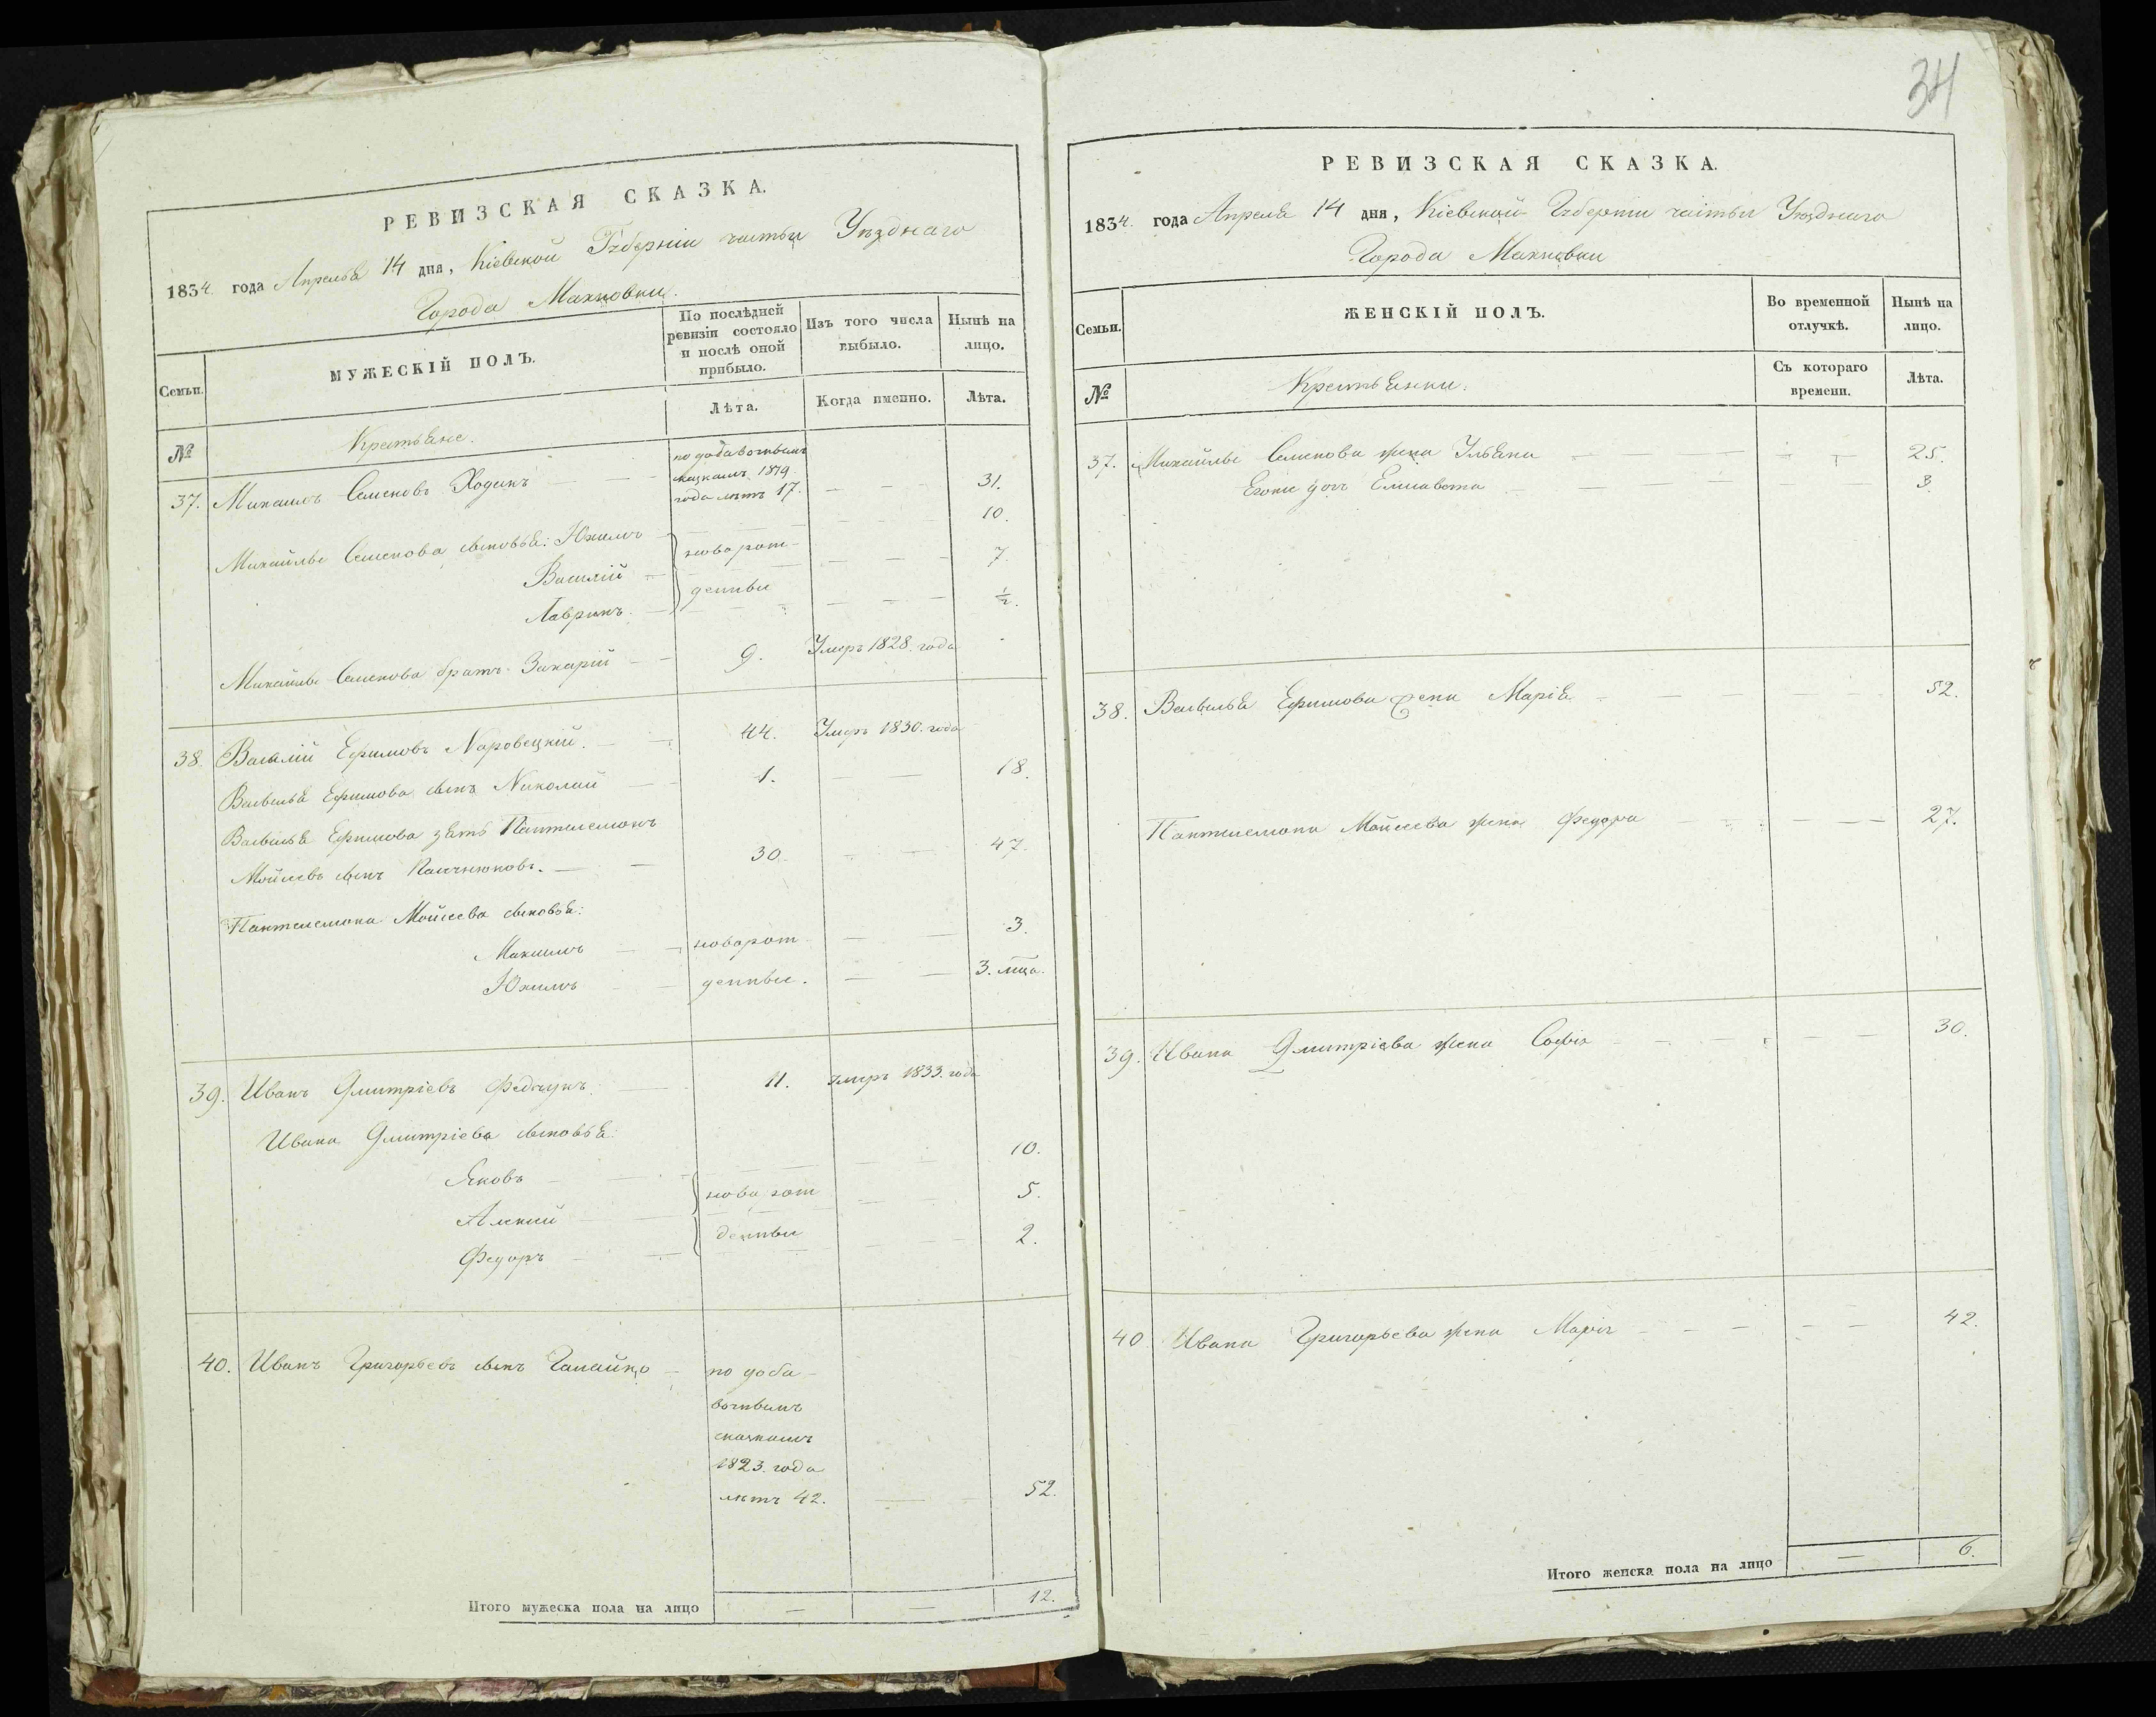 РЕВИЗСКАЯ СКАЗКА.
1834. года Апреля 14 дня, Кіевской Губерніи части Уѣзднаго
Города Махновки.
Семьи.
МУЖЕСКІЙ ПОЛЪ.
По послѣдней ревизіи состояло и послѣ оной прибыло.
Изъ того числа выбыло.
Нынѣ на лицо.
Лѣта.
Когда именно.
Лѣта.
№
Крестьяне.
37. Михаилъ Семеновъ Ходакъ
по добавочнымъ
сказкамъ 1819
года лѣтъ 17.
31.
Михайлы Семенова сыновья: Юхимъ
10.
Василій
7.
Лаврикъ
½.
новорож-
денные
Михайлы Семенова братъ Захарій 9. Умеръ 1828. года
38. Василій Ефимовъ Наровецкій. 44. Умеръ 1830. года
Василья Ефимова сынъ Николай 1. 18.
Василья Ефимова зять Пантелемонъ
Мойсеевъ сынъ 30. 47.
Пантелемона Мойсеева сыновья:
Максимъ новорож 3.
Юхимъ денные. 3. мца.
39. Иванъ Дмитріевъ Федчукъ 11. умеръ 1833. года
Ивана Дмитріева сыновья:
Яковъ 10.
Алексей новорож 5.
Федоръ денные 2.
40. Иванъ Григорьевъ сынъ Галайко
по доба-
вочнымъ
сказкамъ
1823. года
лѣтъ 42. 52.
Итого мужеска пола на лицо — — 12.
34
РЕВИЗСКАЯ СКАЗКА.
1834. года Апреля 14 дня, Кіевской Губерніи части Уѣзднаго
Города Махновки
Семьи.
ЖЕНСКІЙ ПОЛЪ.
Во временной отлучкѣ.
Нынѣ на лицо.
№
Крестьянки.
Съ котораго времени.
Лѣта.
37. Михайлы Семенова жена Ульяна 25.
Егоже дочь Елисавета 3.
38. Василья Ефимова жена Марія 52.
Пантелемона Мойсеева жена Федора 27.
39. Ивана Дмитріева жена Софія 30.
40 Ивана Григорьева жена Марія 42.
Итого женска пола на лицо — 6.